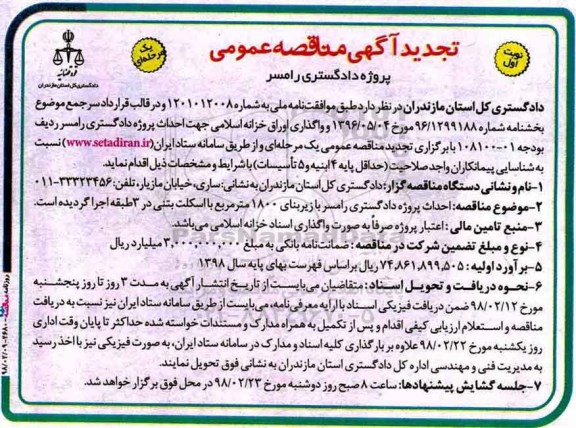 تجدید آگهی مناقصه عمومی
پروژه دادگستری رامسر
نوبت اول
یک مرحله‌ای
دادگستری کل استان مازندران
دادگستری کل استان مازندران در نظر دارد طبق موافقت‌نامه ملی به شماره ۱۲۰۱۰۱۲۰۰۸ و در قالب قرارداد سرجمع موضوع
بخشنامه شماره ۹۶/۱۲۹۹۱۸۸ مورخ ۱۳۹۶/۰۵/۰۴ و واگذاری اوراق خزانه اسلامی جهت احداث پروژه دادگستری رامسر ردیف
بودجه ۰۱-۱۰۸۱۰۰ با برگزاری تجدید مناقصه عمومی یک مرحله‌ای و از طریق سامانه ستاد ایران (www.setadiran.ir) نسبت
به شناسایی پیمانکاران واجد صلاحیت (حداقل پایه ۴ ابنیه و ۵ تأسیسات) با شرایط و مشخصات ذیل اقدام نماید.
۱-نام و نشانی دستگاه مناقصه گزار: دادگستری کل استان مازندران به نشانی: ساری، خیابان مازیار، تلفن: ۳۳۳۲۳۴۵۶-۰۱۱
۲-موضوع مناقصه: احداث پروژه دادگستری رامسر با زیربنای ۱۸۰۰ مترمربع با اسکلت بتنی در ۳ طبقه اجرا گردیده است.
۳-منبع تامین مالی : اعتبار پروژه صرفاً به صورت واگذاری اسناد خزانه اسلامی می‌باشد.
۴-نوع و مبلغ تضمین شرکت در مناقصه : ضمانت‌نامه بانکی به مبلغ ۳,۰۰۰,۰۰۰,۰۰۰ میلیارد ریال
۵-برآورد اولیه : ۷۴,۸۶۱,۸۹۹,۵۰۵ ریال بر اساس فهرست بهای پایه سال ۱۳۹۸
۶-نحوه دریافت و تحویل اسناد : متقاضیان می‌بایست از تاریخ انتشار آگهی به مدت ۳ روز تا روز پنجشنبه
مورخ ۹۸/۰۲/۱۲ ضمن دریافت فیزیکی اسناد با ارایه معرفی‌نامه، می‌بایست از طریق سامانه ستاد ایران نیز نسبت به دریافت
مناقصه و استعلام ارزیابی کیفی اقدام و پس از تکمیل به همراه مدارک و مستندات خواسته شده حداکثر تا پایان وقت اداری
روز یکشنبه مورخ ۹۸/۰۲/۲۲ علاوه بر بارگذاری کلیه اسناد و مدارک در سامانه ستاد ایران، به صورت فیزیکی نیز با اخذ رسید
به مدیریت فنی و مهندسی اداره کل دادگستری استان مازندران به نشانی فوق تحویل نمایند.
۷-جلسه گشایش پیشنهادها: ساعت ۸ صبح روز دوشنبه مورخ ۹۸/۰۲/۲۳ در محل فوق برگزار خواهد شد.